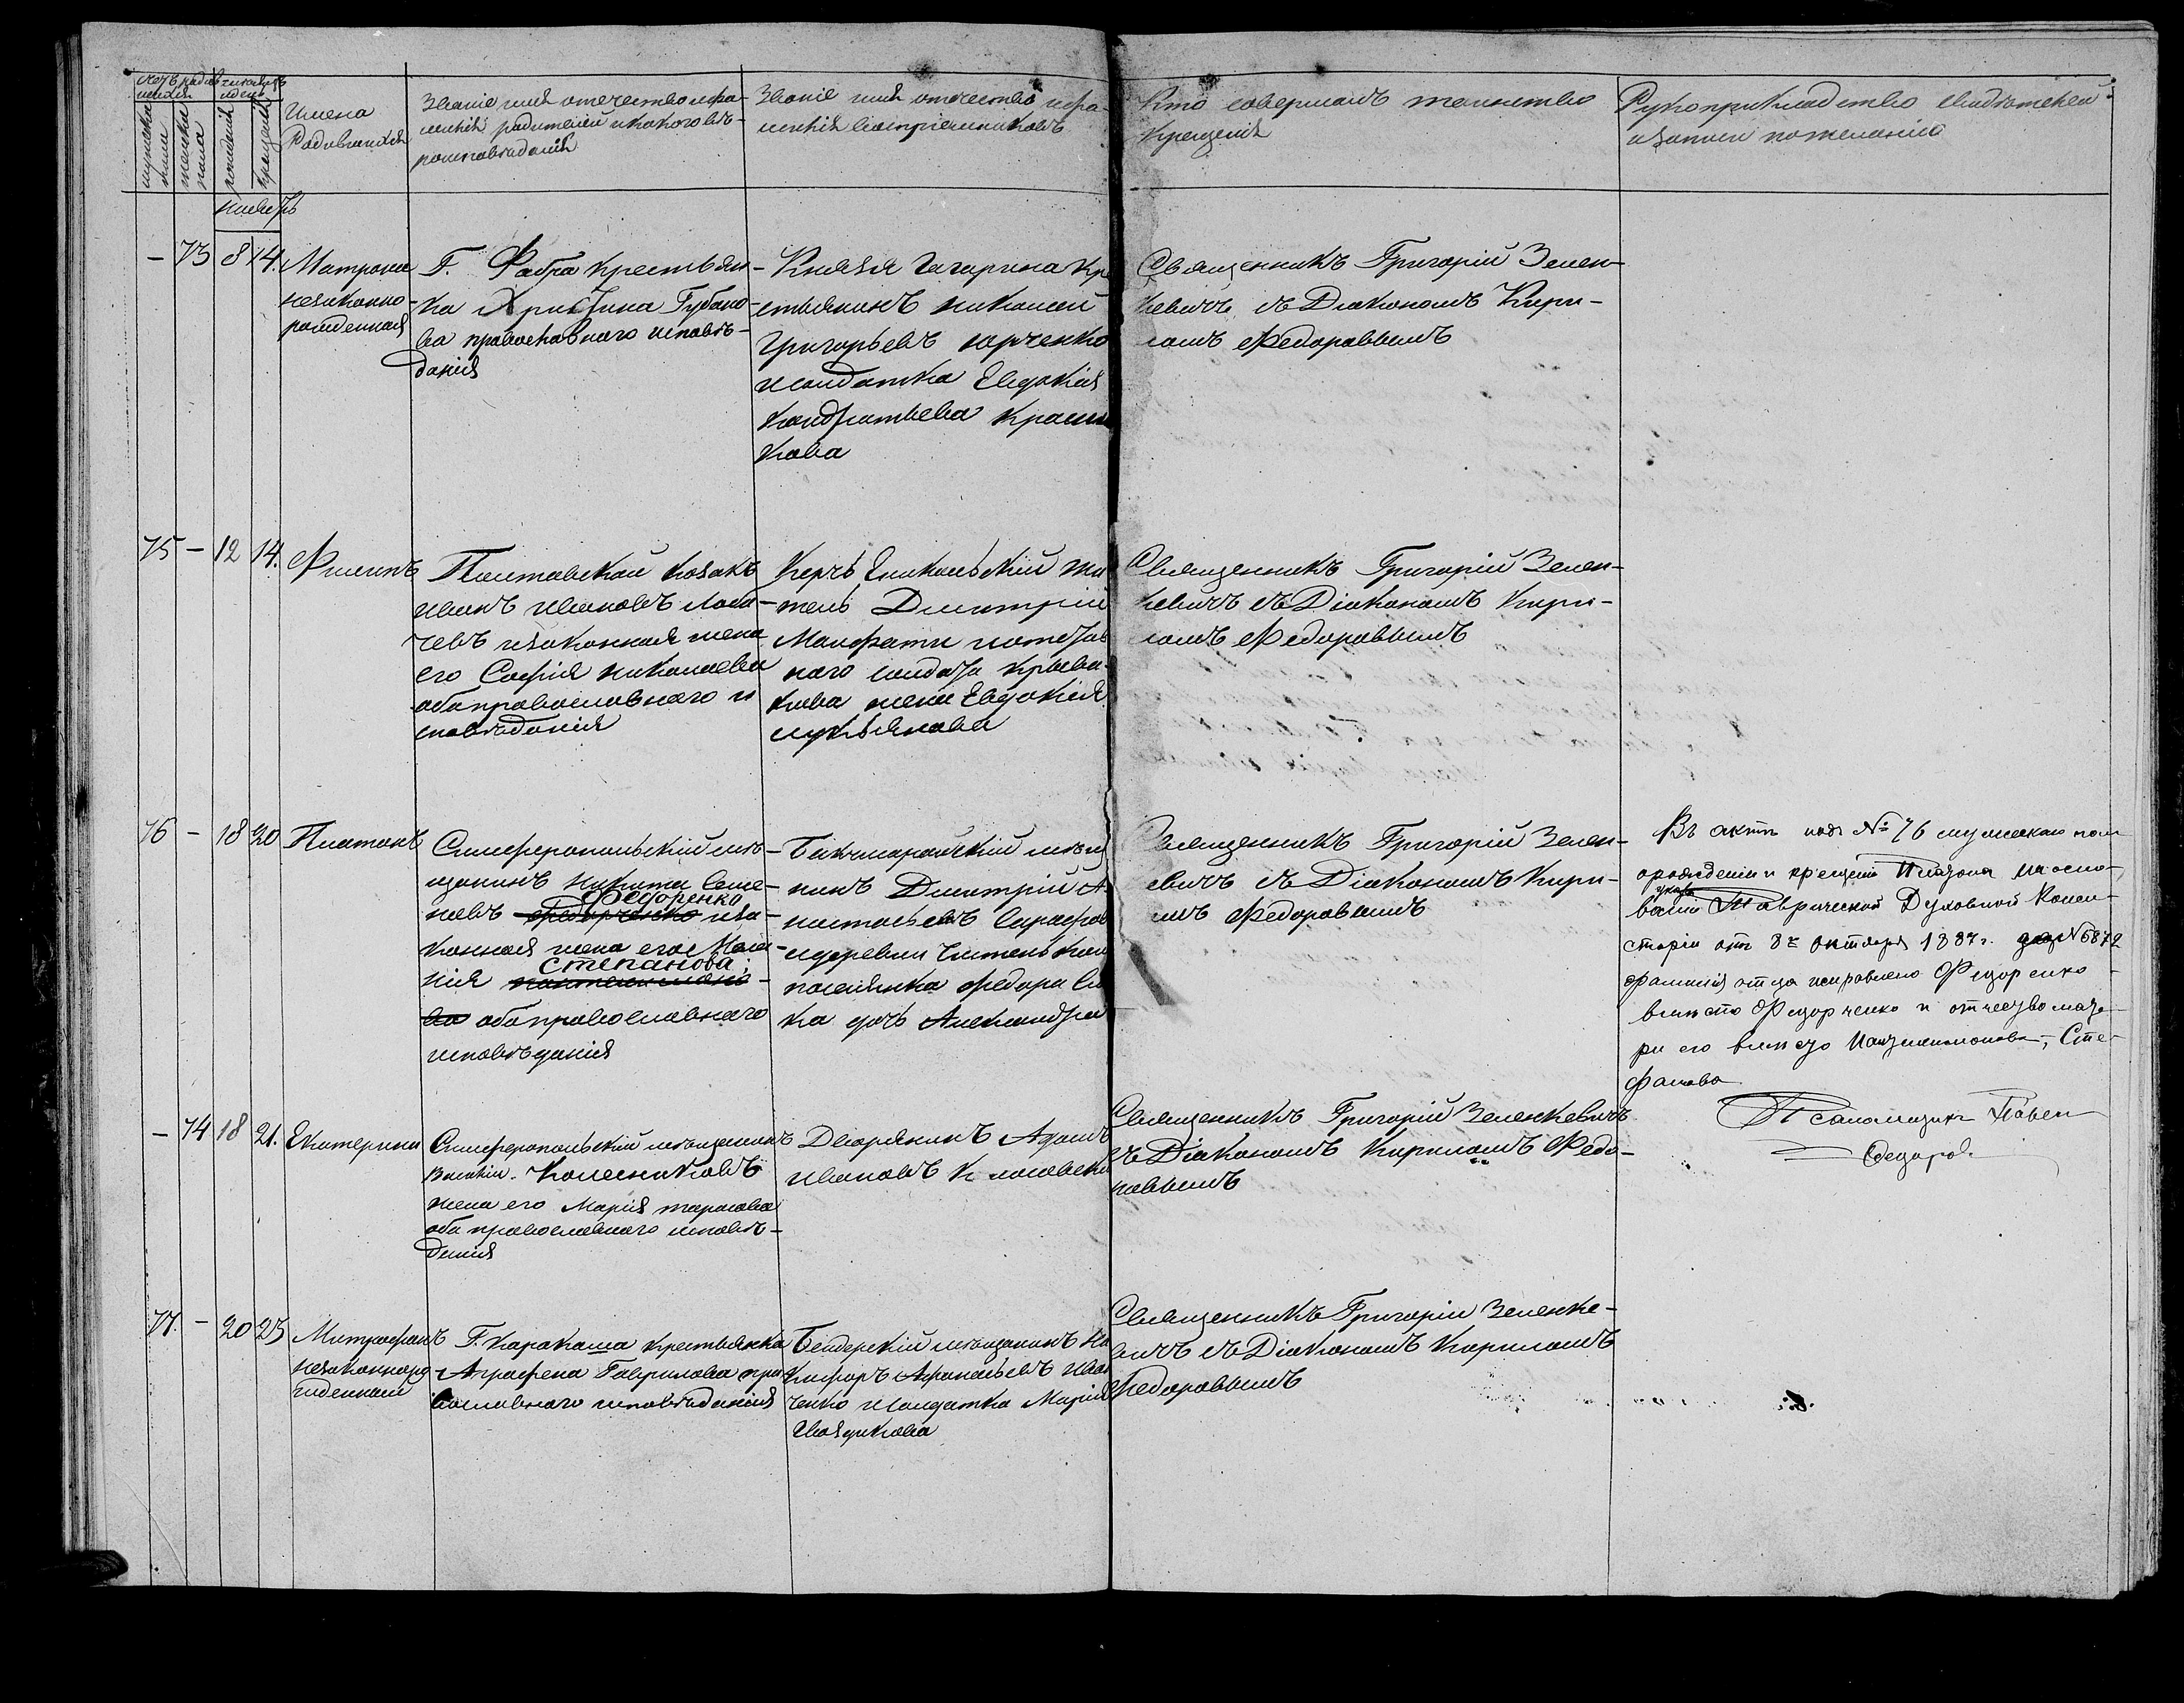 Счетъ родив
шихся
мужеска
пола
женска
пола
Мѣсяцъ
и день
рожденія
крещенія
Имена
Родившихся
Званіе имя отечество и фа-
милія родителей и какого вѣ-
роисповѣданія
Званіе имя отечество и фа-
милія воспріемниковъ
Кто совершалъ таинство
крещенія
Рукоприкладство свидѣтелей
записи по желанію
Ноябрь
- 73 8 14. Матрона
незаконно-
рожденная
Г. Фабра крестьян-
ка Христина Губано-
ва православнаго исповѣ-
данія
Князя Гагарина кре
стьянинъ Николай
Григорьевъ Юрченко
и солдатка Евдокія
Кондратьева
кова
Священникъ Григорій Зелен-
кевичъ съ Діакономъ Кири-
ломъ Федоровымъ
75 - 12 14. Филипъ
Полтавской козакъ
Иванъ Ивановъ
чевъ и законная жена
его Софія Николаева
оба православнаго и
сповѣданія
Керчь Еникольскій жи
тель Дмитрій
Манфати и отстав
наго солдата
жена Евдокія
Лукьянова
Священникъ Григорій Зелен-
кевичъ съ Діакономъ Кири-
ломъ Федоровымъ
76 - 18 20 Платонъ
Симферопольскій мѣ-
щанинъ Никита Семе-
Федоренко
новъ Федорченко и за-
конная жена его Мела-
Степанова
нія Пантелимоно-
ва оба православнаго
исповѣданія
Бахчисарайскій мѣщ
нинъ Дмитрій А
настасьевъ
и деревни
поселянка Федора
ка дочь Александра
Священникъ Григорій Зелен-
евичъ съ Діакономъ Кири-
мъ Федоровымъ
Въ актѣ подъ № 76 мужескаго пола
о рожденіи и крещеніи Платона на осно-
указа
ваніи Таврической Духовной Конси-
сторіи отъ 8го октября 1887 г. за № 5872
фамилія отца исправлена Федоренко
вмѣсто Федорченко и отчество мате-
ри его вмѣсто Пантелимонова, Сте-
фанова
Псаломщикъ Павел
Федоров
- 74 18 21. Екатерина
Симферопольскій мѣщанинъ
Василій Колесниковъ
жена его Марія Тарасова
оба православнаго исповѣ-
данія
Дворянинъ Адамъ
Ивановъ
Священникъ Григорій Зеленкевичъ
съ Діакономъ Кириломъ Федо-
ровымъ
77. - 20 23 Митрофанъ
незаконноро
жденный
Г. Каракаша крестьянка
Аграфена Гаврилова пра
вославнаго исповѣданія
Бендерскій мѣщанинъ Ни
кифоръ Афанасьевъ Иван
ченко и солдатка Марія
Гвоздикова
Священникъ Григорій Зеленке-
вичъ съ Діакономъ Кириломъ
Федоровымъ